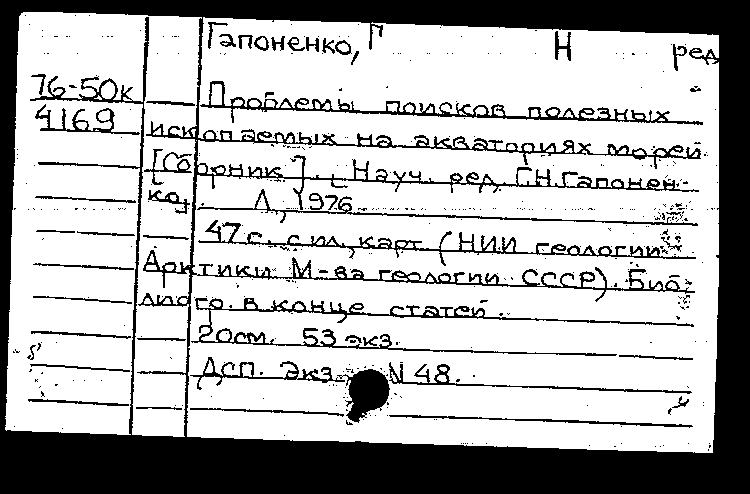 Гапоненко, Г Н ред
76-50к Проблемы поисков полезных
4169 ископаемых на акваториях морей
[Сборник]. [Науч. ред. Г.Н.Гапонен-
ко]. Л., 1976.
47 с. с ил., карт (НИИ геологии
Арктики М-ва геологии СССР). Биб-
лиогр. в конце статей.
20см. 53 экз.
Дсп. Экз. N 48.